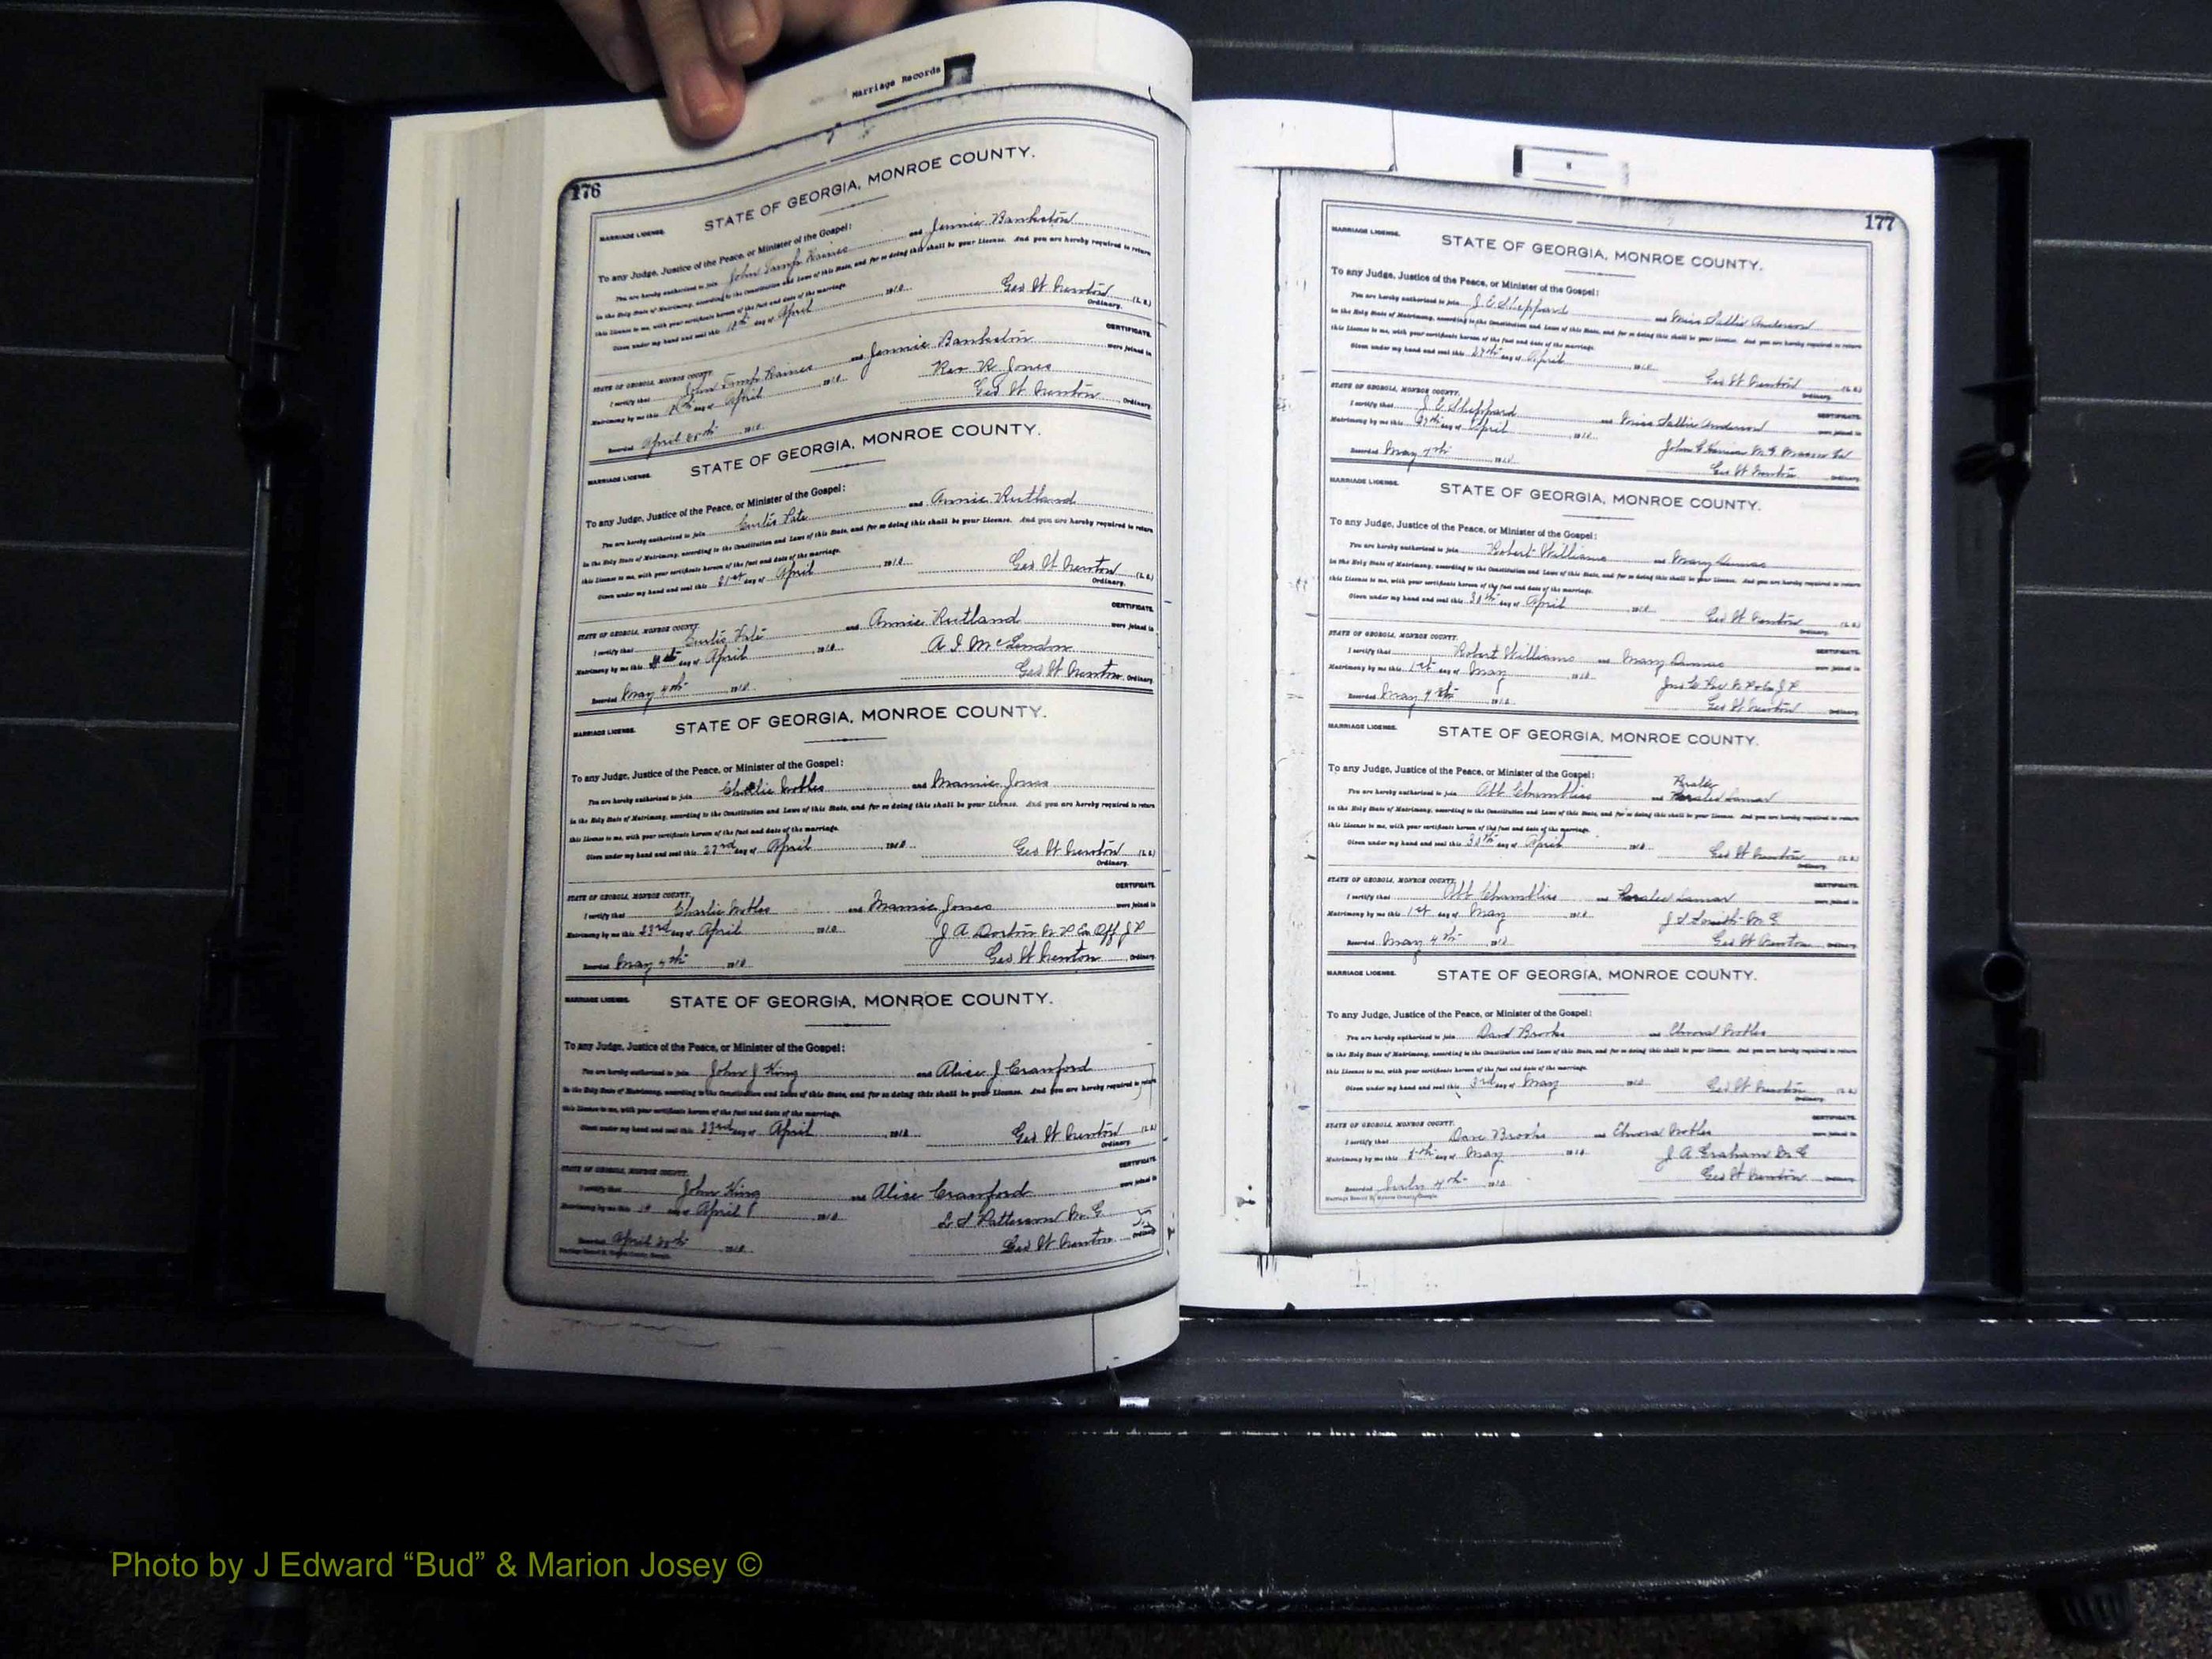 Marriage Records
176
STATE OF GEORGIA, MONROE COUNTY.
MARRIAGE LICENSE.
To any Judge, Justice of the Peace, or Minister of the Gospel:
You are hereby authorized to join John and Jennie Bankston
in the Holy State of Matrimony, according to the Constitution and Laws of this State, and for so doing this shall be your License. And you are hereby required to return
this License to me, with your certificate hereon of the fact and date of the marriage.
Given under my hand and seal this day of April 1910. Geo W Newton (L. S.)
Ordinary.
CERTIFICATE.
STATE OF GEORGIA, MONROE COUNTY.
I certify that John and Jennie Bankston were joined in
Matrimony by me this day of April 1910. Rev R Jones
Recorded April 1910. Geo W Newton Ordinary.
STATE OF GEORGIA, MONROE COUNTY.
MARRIAGE LICENSE.
To any Judge, Justice of the Peace, or Minister of the Gospel:
You are hereby authorized to join Curtis and Annie Rutland
in the Holy State of Matrimony, according to the Constitution and Laws of this State, and for so doing this shall be your License. And you are hereby required to return
this License to me, with your certificate hereon of the fact and date of the marriage.
Given under my hand and seal this 21st day of April 1910. Geo W Newton (L. S.)
Ordinary.
CERTIFICATE.
STATE OF GEORGIA, MONROE COUNTY.
I certify that Curtis and Annie Rutland were joined in
Matrimony by me this day of April 1910. A I McLendon
Recorded May 4th 1910. Geo W Newton Ordinary.
MARRIAGE LICENSE.
STATE OF GEORGIA, MONROE COUNTY.
To any Judge, Justice of the Peace, or Minister of the Gospel:
You are hereby authorized to join Charlie Nobles and Mamie Jones
in the Holy State of Matrimony, according to the Constitution and Laws of this State, and for so doing this shall be your License. And you are hereby required to return
this License to me, with your certificate hereon of the fact and date of the marriage.
Given under my hand and seal this 23rd day of April 1910. Geo W Newton (L. S.)
Ordinary.
CERTIFICATE.
STATE OF GEORGIA, MONROE COUNTY.
I certify that Charlie Nobles and Mamie Jones were joined in
Matrimony by me this 23rd day of April 1910. J A Dorton N P Ex Off J P
Recorded May 4th 1910. Geo W Newton Ordinary.
MARRIAGE LICENSE.
STATE OF GEORGIA, MONROE COUNTY.
To any Judge, Justice of the Peace, or Minister of the Gospel:
You are hereby authorized to join John J King and Alice J Cranford
in the Holy State of Matrimony, according to the Constitution and Laws of this State, and for so doing this shall be your License. And you are hereby required to return
this License to me, with your certificate hereon of the fact and date of the marriage.
Given under my hand and seal this 23rd day of April 1910. Geo W Newton (L. S.)
Ordinary.
CERTIFICATE.
STATE OF GEORGIA, MONROE COUNTY.
I certify that John King and Alice Cranford were joined in
Matrimony by me this day of April 1910. L S Patterson M. G
Recorded April 1910. Geo W Newton Ordinary
177
MARRIAGE LICENSE.
STATE OF GEORGIA, MONROE COUNTY.
To any Judge, Justice of the Peace, or Minister of the Gospel:
You are hereby authorized to join J. E Sheppard and Miss Sallie Anderson
in the Holy State of Matrimony, according to the Constitution and Laws of this State, and for so doing this shall be your License. And you are hereby required to return
this License to me, with your certificate hereon of the fact and date of the marriage.
Given under my hand and seal this 27th day of April 1910. Geo W Newton (L. S.)
Ordinary.
STATE OF GEORGIA, MONROE COUNTY.
CERTIFICATE.
I certify that J. E Sheppard and Miss Sallie Anderson were joined in
Matrimony by me this 27th day of April 1910. John G Harrison M. G
Recorded May 1910. Geo W Newton Ordinary.
MARRIAGE LICENSE.
STATE OF GEORGIA, MONROE COUNTY.
To any Judge, Justice of the Peace, or Minister of the Gospel:
You are hereby authorized to join Robert Williams and Mary
in the Holy State of Matrimony, according to the Constitution and Laws of this State, and for so doing this shall be your License. And you are hereby required to return
this License to me, with your certificate hereon of the fact and date of the marriage.
Given under my hand and seal this 30th day of April 1910. Geo W Newton (L. S.)
Ordinary.
STATE OF GEORGIA, MONROE COUNTY.
CERTIFICATE.
I certify that Robert Williams and Mary were joined in
Matrimony by me this 1st day of May 1910. J P
Recorded May 4th 1910. Geo W Newton Ordinary.
MARRIAGE LICENSE.
STATE OF GEORGIA, MONROE COUNTY.
To any Judge, Justice of the Peace, or Minister of the Gospel:
You are hereby authorized to join Abb Chambliss and Lamar
in the Holy State of Matrimony, according to the Constitution and Laws of this State, and for so doing this shall be your License. And you are hereby required to return
this License to me, with your certificate hereon of the fact and date of the marriage.
Given under my hand and seal this 30th day of April 1910. Geo W Newton (L. S.)
Ordinary.
STATE OF GEORGIA, MONROE COUNTY.
CERTIFICATE.
I certify that Abb Chambliss and Lamar were joined in
Matrimony by me this 1st day of May 1910. J S Smith M. G
Recorded May 4th 1910. Geo W Newton Ordinary.
MARRIAGE LICENSE.
STATE OF GEORGIA, MONROE COUNTY.
To any Judge, Justice of the Peace, or Minister of the Gospel:
You are hereby authorized to join Dave Brooks and Elnora Nobles
in the Holy State of Matrimony, according to the Constitution and Laws of this State, and for so doing this shall be your License. And you are hereby required to return
this License to me, with your certificate hereon of the fact and date of the marriage.
Given under my hand and seal this 3rd day of May 1910. Geo W Newton (L. S.)
Ordinary.
STATE OF GEORGIA, MONROE COUNTY.
CERTIFICATE.
I certify that Dave Brooks and Elnora Nobles were joined in
Matrimony by me this day of May 1910. J A Graham M. G
Recorded July 4th 1910. Geo W Newton Ordinary.
Photo by J Edward “Bud” & Marion Josey ©